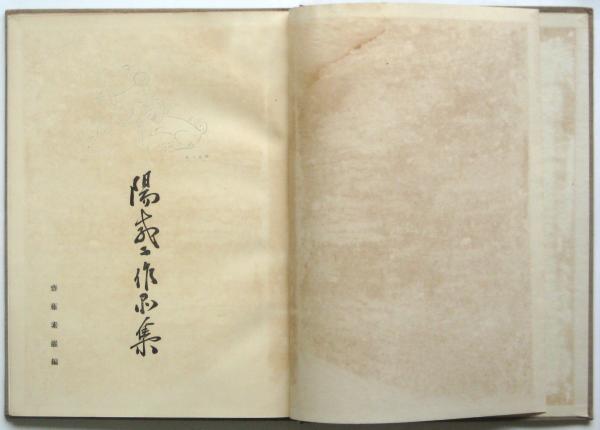 陽咸二作品集
齋藤素巖編